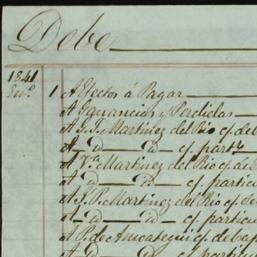 Debe
1841
En.º 1 A Efectos á Pagar
A Ganancias y Perdidas
A G. J. Martinez del Rio c/. de
A D D c/. parte
A V.ª Martinez del Rio c/. de
A D D c/. particu
A J. P. Martinez del Rio c/. de
A D D c/. particu
A P. de Ansoategui c/. de Cap
A D D c/. particu